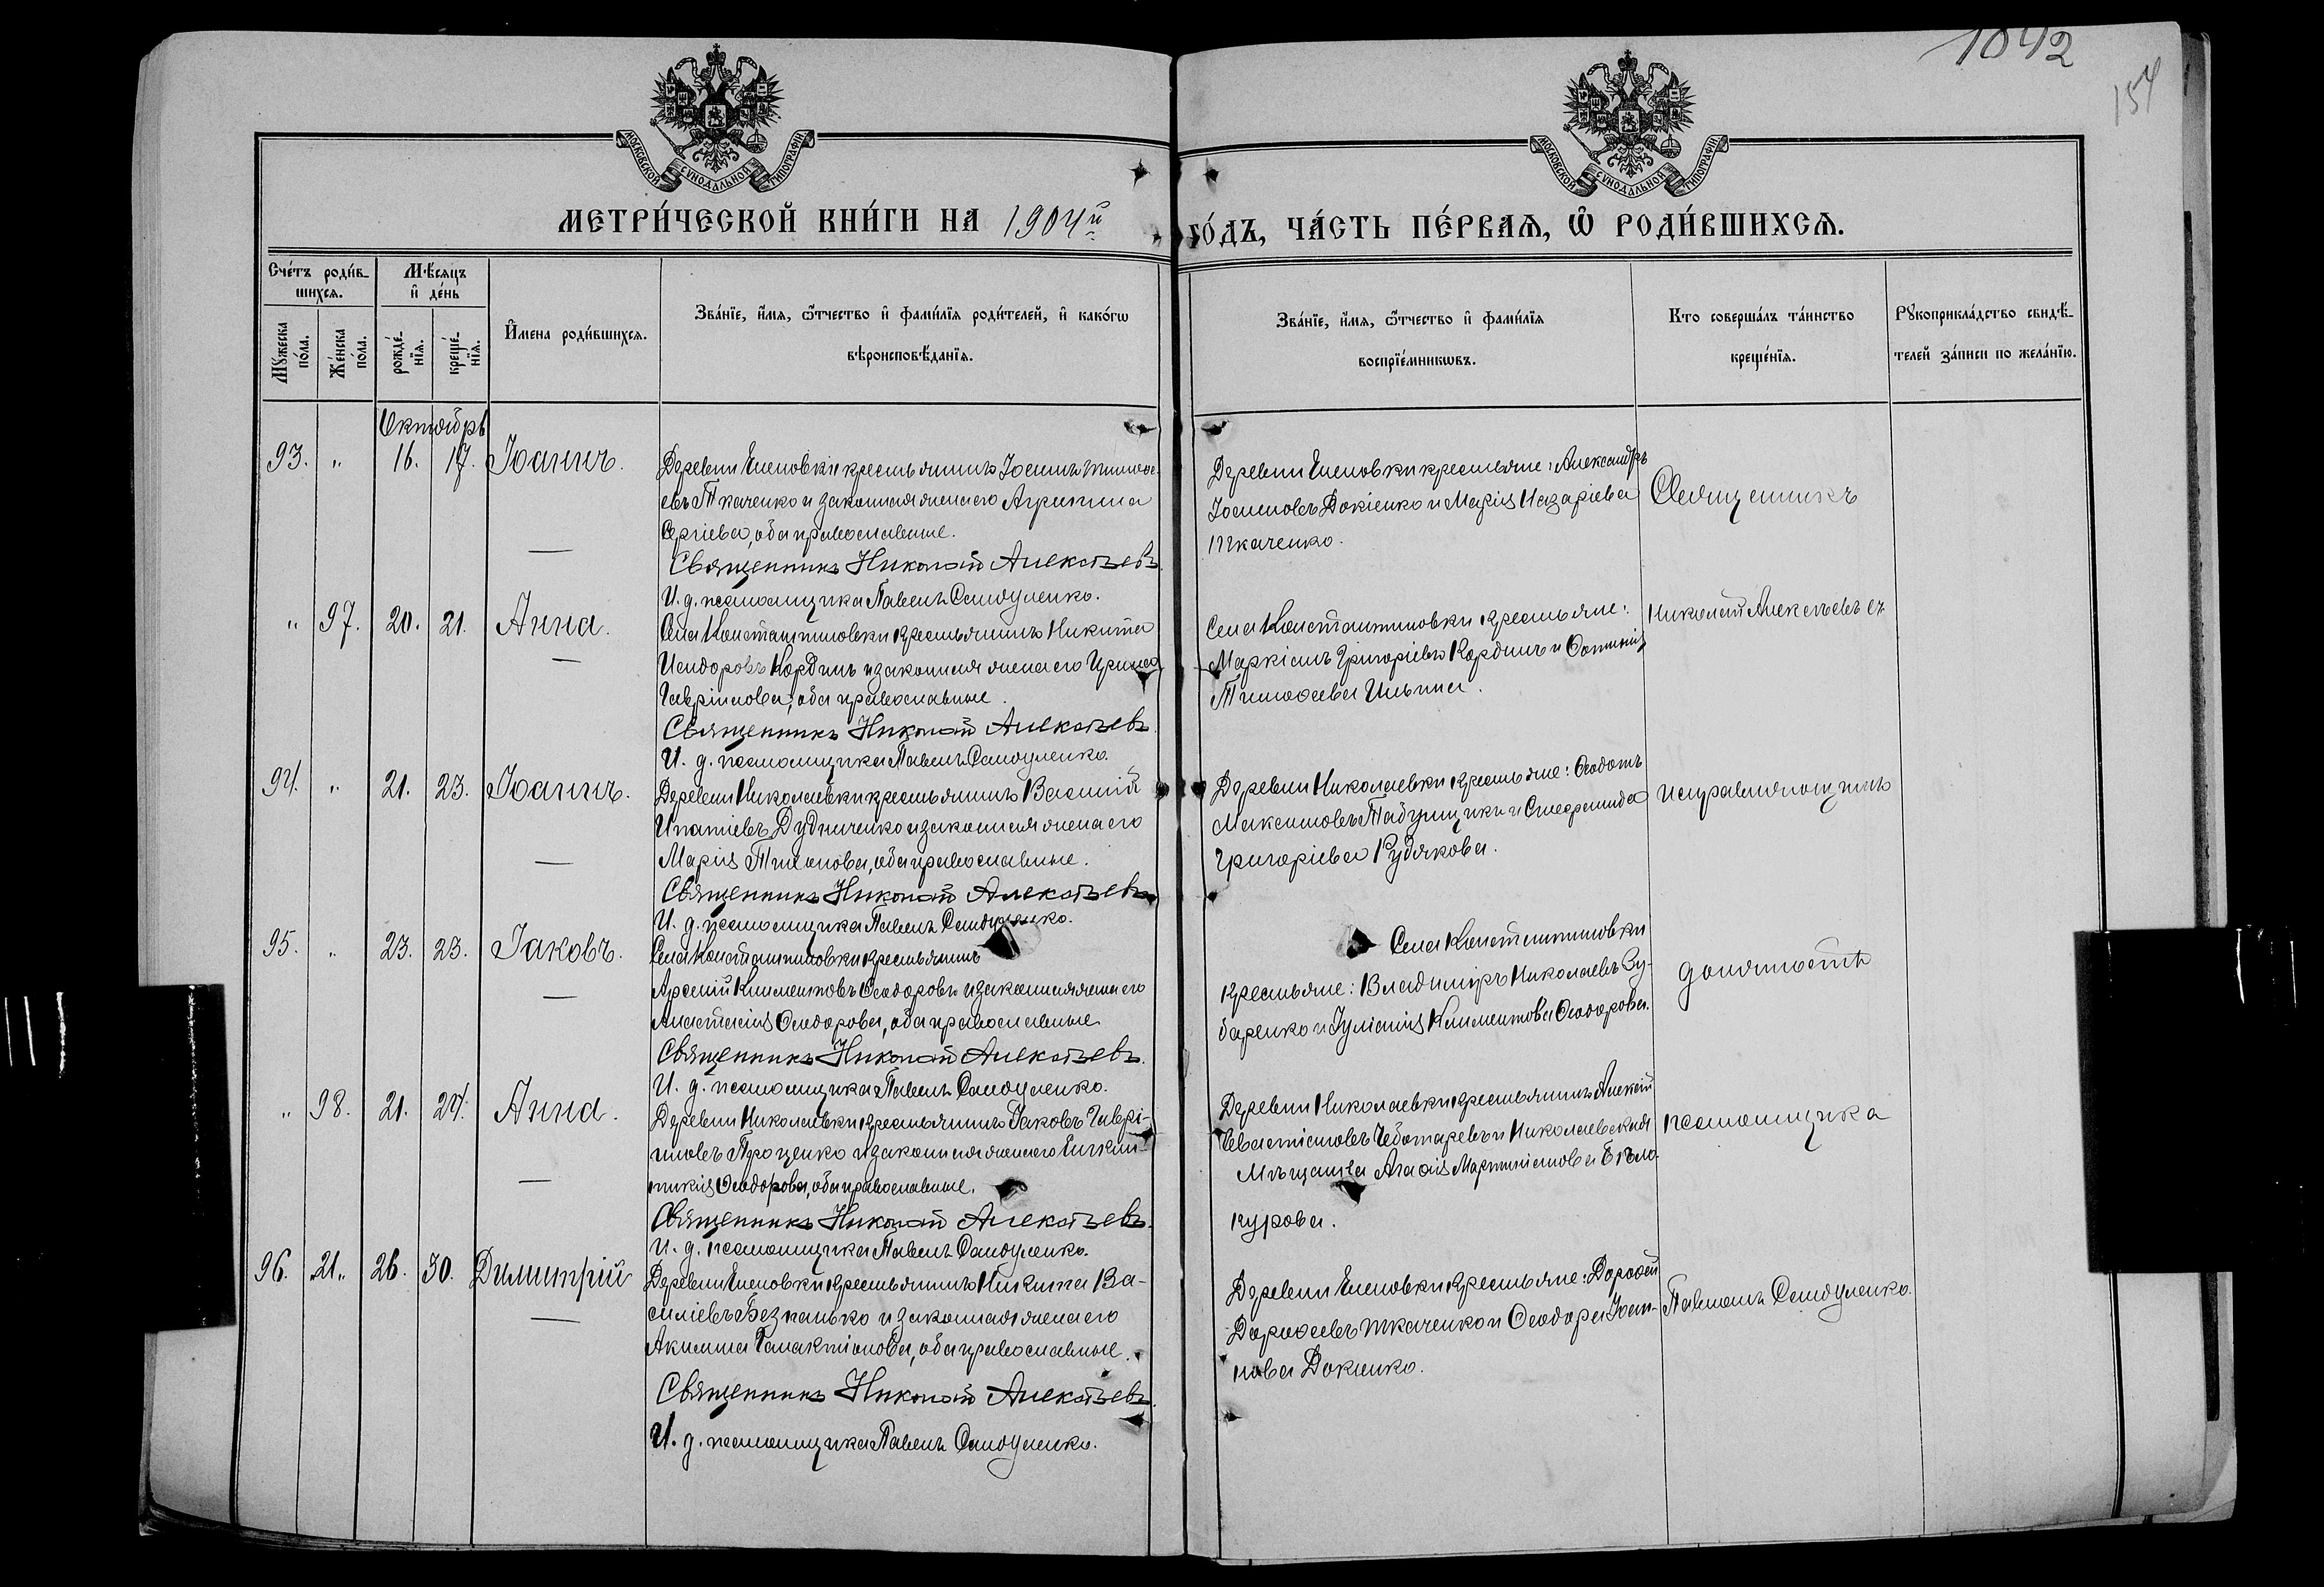 1042
154
МОСКОВСКОЙ СѴНОДАЛЬНОЙ ТИПОГРАФІИ
МОСКОВСКОЙ СѴНОДАЛЬНОЙ ТИПОГРАФІИ
МЕТРИ́ЧЕСКОЙ КНИ́ГИ НА 1904й
ГО́ДЪ, ЧА́СТЬ ПЕ́РВАѦ, Ѡ҆ РОДИ́ВШИХСѦ.
Сче́тъ роди́в-
шихсѧ.
Мꙋ́жеска по́ла.
Же́нска по́ла.
Мѣ́сѧцъ
и҆ де́нь
рожде́-
нїѧ.
креще́-
нїѧ.
И҆мена роди́вшихсѧ.
Зва́нїе, и҆́мѧ, ѻ҆́тчество и҆ фами́лїѧ роди́телей, и҆ како́гѡ
вѣроисповѣ́данїѧ.
Зва́нїе, и҆́мѧ, ѻ҆́тчество и҆ фами́лїѧ
воспрїе́мникѡвъ.
Кто соверша́лъ та́инство
креще́нїѧ.
Рꙋкоприкла́дство свидѣ́-
телей за́писи по жела́нїю.
Октябрь
93. " 16. 17. Іоаннъ.
Деревни Еленовки крестьянинъ Іоаннъ Тимоѳе-
евъ Ткаченко и законная жена его Агрипина
Сергіева, оба православные.
Священникъ Николай Алексѣевъ.
И. д. псаломщика Павелъ Самойленко.
Деревни Еленовки крестьяне: Александръ
Іоанновъ Докіенко и Марія Назаріева
Ткаченко.
Священникъ
" 97. 20. 21. Анна.
Села Константиновки крестьянинъ Никита
Исидоровъ Кординъ и законная жена его Ирина
Гавріилова, оба православные.
Священникъ Николай Алексѣевъ.
И. д. псаломщика Павелъ Самойленко.
Села Константиновки крестьяне:
Маркіанъ Григоріевъ Кординъ и
Тимоѳеева Ильина.
Николай Алексѣевъ съ
94. " 21. 23. Іоаннъ.
Деревни Николаевки крестьянинъ Василій
Ипатіевъ Дудниченко и законная жена его
Марія Тихонова, оба православные.
Священникъ Николай Алексѣевъ.
И. д. псаломщика Павелъ Самойленко.
Деревни Николаевки крестьяне: Ѳеодотъ
Максимовъ Табунщикъ и Стефанида
Григоріева Рудякова.
исправляющимъ
95. " 23. 23. Іаковъ.
Села Константиновки крестьянинъ
Арсеній Климентовъ Ѳеодоровъ и законная жена его
Анастасія Ѳеодорова, оба православные
Священникъ Николай Алексѣевъ.
И. д. псаломщика Павелъ Самойленко.
Села Константиновки
крестьяне: Владиміръ Николаевъ Зу-
баренко и Іуліанія Климентова Ѳеодорова.
должность
" 98. 21. 24. Анна.
Деревни Николаевки крестьянинъ Іаковъ Гаврі-
иловъ Проценко и законная жена его
Ѳеодорова, оба православные.
Священникъ Николай Алексѣевъ.
И. д. псаломщика Павелъ Самойленко.
Деревни Николаевки крестьянинъ Алексій
Севастіановъ Чеботаревъ и Николаевская
Мѣщанка Агаѳія Мартиніанова Бѣло-
курова.
псаломщика
96. „21„ 26. 30. Димитрій
Деревни Еленовки крестьянинъ Никита Ва-
силіевъ Безпалько и законная жена его
Акилина Галактіонова, оба православные.
Священникъ Николай Алексѣевъ.
И. д. псаломщика Павелъ Самойленко.
Деревни Еленовки крестьяне: Дороѳей
Дороѳеевъ Ткаченко и Ѳеодора Іоан-
нова Докіенко.
Павломъ Самойленко.